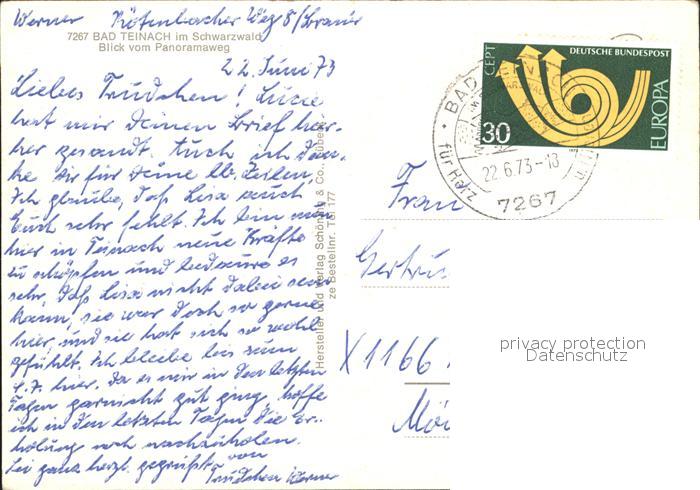 Werner Rötenbacher Weg 8/
7267 BAD TEINACH im Schwarzwald
Blick vom Panoramaweg
22. Juni 73
Liebes Trudchen! Luzie
hat mir Deinen Brief hier-
her gesandt. Auch ich Dan-
ke Dir für Deine lb. Zeilen.
Ich glaube, daß Lisa auch
Euch sehr fehlt. Ich bin nun
hier in Teinach neue Kräfte
zu schöpfen und bedaure es
sehr, daß Lisa nicht dabei sein
kann, sie war doch so gerne
hier und sie hat sich so wohl
gefühlt. Ich bleibe bis zum
4.7. hier. Da es mir in den letzten
Tagen garnicht gut ging, hoffe
ich in den letzten Tagen die Er-
holung noch nachzuholen.
Sei ganz herzl. gegrüßt von
Werner
Hersteller und Verlag Schöning & Co., Lübeck
zu Bestellnr. Tei 177
CEPT
DEUTSCHE BUNDESPOST
30
EUROPA
BAD
für Herz
22.6.73-18
7267
Frau
Gertru
X1166
privacy protection
Datenschutz